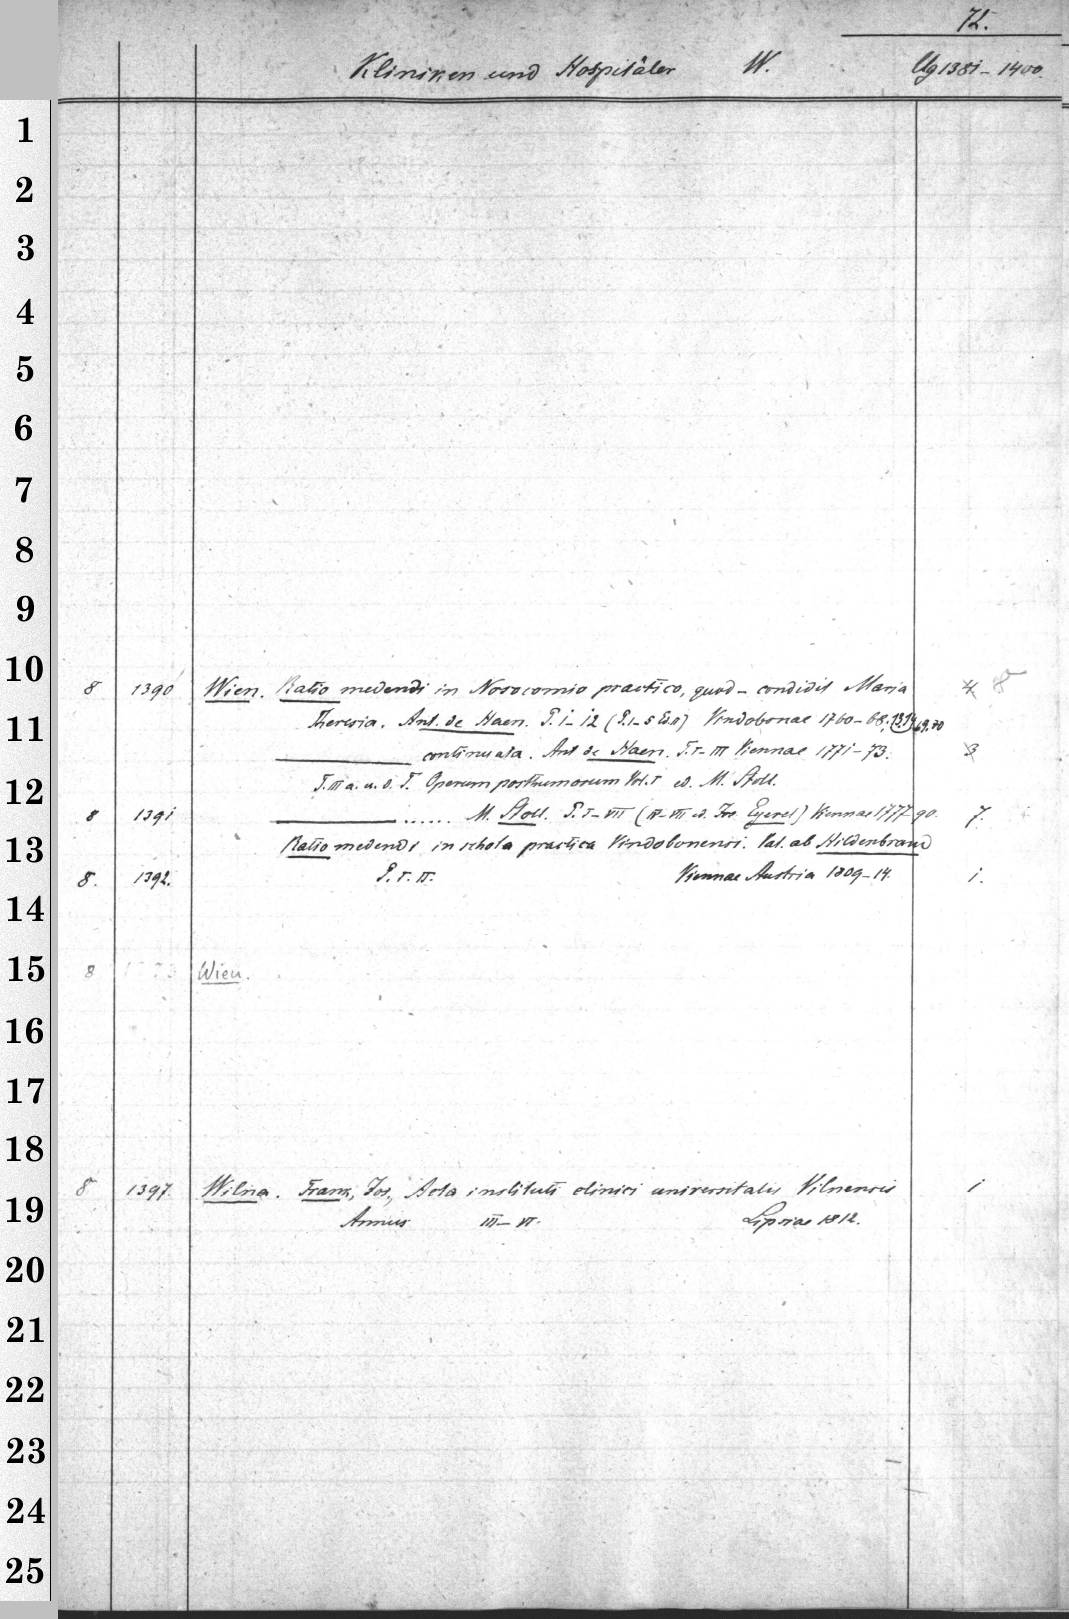 72.
Kliniken und Hospitäler W. Ug 1381-1400.
1
2
3
4
5
6
7
8
9
10
8 1390 Wien. Ratio medendi in Nosocomio practico, quod - condidit Maria 4 8
11
Theresia. Ant. de Haen. P. 1-12 (P. 1-5 Ed. II) Vindobonae 1760-68. 13.14 69.70
continuata. Ant de Haen. T. I-III Viennae 1771-73. 3
12
T. III a. u. d. T. Operum posthumorum Vol. I ed. M. Stoll.
8 1391 ...... M. Stoll. P. I-VII (IV-VII ed. Jos. Eyerel) Viennae 1777-90. 7.
13
Ratio medendi in schola practica Vindobonensi. Val. ab Hildenbrand
8. 1392. P. I. II. Viennae Austria 1809-14. 1.
14
15
8 Wien.
16
17
18
8 1397. Wilna. Frank, Jos., Acta instituti clinici universitatis Vilnensis 1
19
Annus III-VI. Lipsiae 1812.
20
21
22
23
24
25